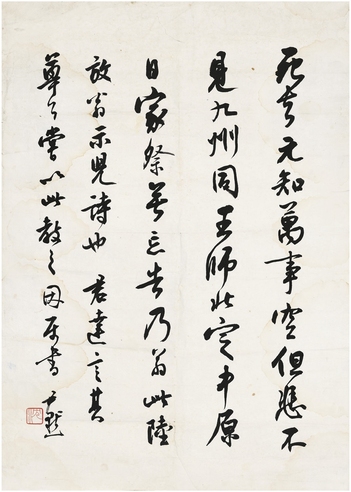 死去元知萬事空但悲不
見九州同王師北定中原
日家祭無忘告乃翁此陸
放翁示兒詩也君達言其
尊公嘗以此教之因屬書尹默